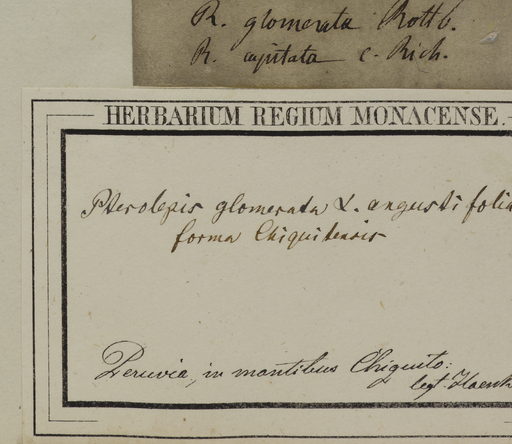 R. glomerata Rottb.
R. capitata c. Rich.
HERBARIUM REGIUM MONACENSE.
Pterolepis glomerata α. angustifolia
forma Chiquitensis
Peruvia, in montibus Chiquito:
legt Haenk